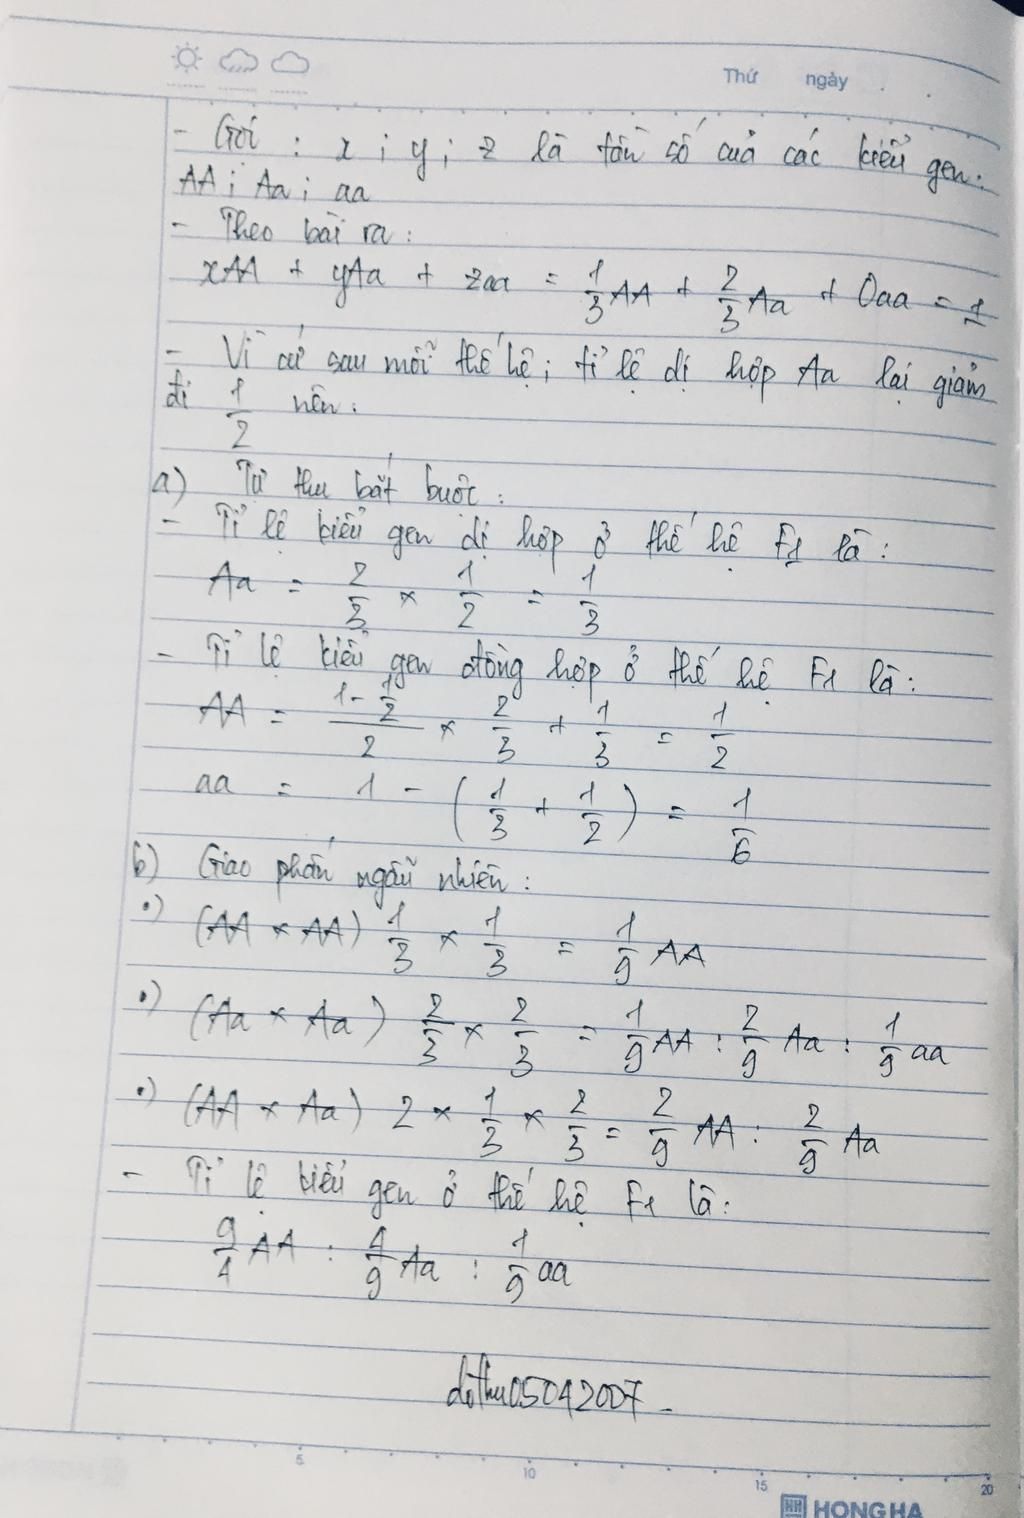 Thứ ngày
- Gọi : x ; y ; z là tần số của các kiểu gen:
AA ; Aa ; aa
- Theo bài ra :
xAA + yAa + zaa = 1/3 AA + 2/3 Aa + 0aa = 1
- Vì cứ sau mỗi thế hệ ; tỉ lệ dị hợp Aa lại giảm
đi 1/2 nên :
a) Tự thụ bắt buộc :
- Tỉ lệ kiểu gen dị hợp ở thế hệ F1 là :
Aa = 2/3 × 1/2 = 1/3
- Tỉ lệ kiểu gen đồng hợp ở thế hệ F1 là :
AA = (1 - 1/2)/2 × 2/3 + 1/3 = 1/2
aa = 1 - (1/3 + 1/2) = 1/6
b) Giao phấn ngẫu nhiên :
•) (AA × AA) 1/3 × 1/3 = 1/9 AA
•) (Aa × Aa) 2/3 × 2/3 = 1/9 AA : 2/9 Aa : 1/9 aa
•) (AA × Aa) 2 × 1/3 × 2/3 = 2/9 AA : 2/9 Aa
- Tỉ lệ kiểu gen ở thế hệ F1 là :
9/4 AA : 4/9 Aa : 1/9 aa
dothu05042007_
5 10 15 20
HH HONG HA